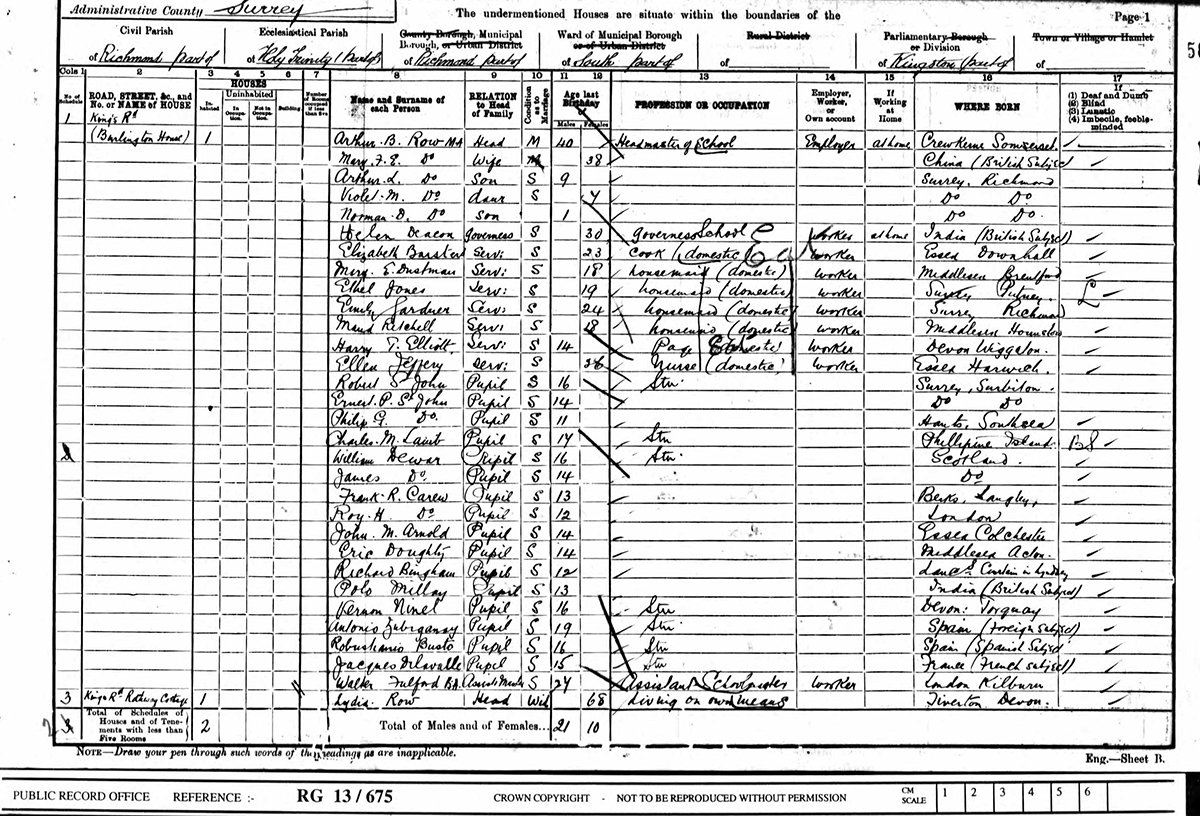 Administrative County Surrey
The undermentioned Houses are situate within the boundaries of the
Page 1
Civil Parish
of Richmond part of
Ecclesiastical Parish
of Holy Trinity (Part of)
County Borough, Municipal Borough, or Urban District
of Richmond part of
Ward of Municipal Borough or of Urban District
of South part of
Rural District
of
Parliamentary Borough or Division
of Kingston part of
Town or Village or Hamlet
of
Cols 1 2 3 4 5 6 7 8 9 10 11 12 13 14 15 16 17
No. of Schedule
ROAD, STREET, &c., and No. or NAME of HOUSE
HOUSES
Inhabited
Uninhabited
In Occupation
Not in Occupation
Building
Number of Rooms occupied if less than five
Name and Surname of each Person
RELATION to Head of Family
Condition as to Marriage
Age last Birthday
Males Females
PROFESSION OR OCCUPATION
Employer, Worker, or Own account
If Working at Home
WHERE BORN
If (1) Deaf and Dumb (2) Blind (3) Lunatic (4) Imbecile, feeble-minded
1 King's Rd
(Burlington House) 1 Arthur B. Row MA Head M 40 Headmaster of School Employer at home Crewkerne Somerset
Mary F. E. Do Wife M 38 China (British Subject)
Arthur L. Do Son S 9 Surrey, Richmond
Violet M. Do daur S 7 Do Do
Norman D. Do Son 1 Do Do
Helen Deacon Governess S 30 Governess School worker at home India (British Subject)
Elizabeth S 23 Cook (domestic) worker Essex Downhall
Mary E. Dustman Serv: S 18 housemaid (domestic) worker Middlesex Brentford
Ethel Jones Serv: S 19 housemaid (domestic) worker Surrey Putney
Emily Gardner Serv: S 24 housemaid (domestic) worker Surrey Richmond
Maud Retchell Serv: S 18 housemaid (domestic) worker Middlesex Hounslow
Harry T. Elliott Serv: S 14 Page domestic worker Devon
Ellen Jeffery Serv: S 26 Nurse (domestic) worker Essex Harwich
Robert St John Pupil S 16 Stu Surrey, Surbiton
Ernest P. St John Pupil S 14 Do Do
Philip G. Do Pupil S 11 Hants, Southsea
Charles M. Pupil S 17 Stu Phillipine Island BS
2 William Dewar Pupil S 16 Stu Scotland
James Do Pupil S 14 Do
Frank R. Carew Pupil S 13 Berks, Langley
Roy H Do Pupil S 12 London
John M. Arnold Pupil S 14 Essex Colchester
Eric Doughty Pupil S 14 Middlesex Acton
Richard Bingham Pupil S 12 Lancs
Polo Pupil S 13 India (British Subject)
Vernon Pupil S 16 Stu Devon: Torquay
Antonio Pupil S 19 Stu Spain (Foreign Subject)
Busto Pupil S 16 Stu Spain (Spanish Subject)
Jacques Delavalle Pupil S 15 Stu France (French Subject)
Walter Fulford BA S 27 Assistant Schoolmaster worker London Kilburn
3 King's Rd Cottage 1 Lydia Row Head Wid 68 Living on own means Tiverton Devon
Total of Schedules of Houses and of Tenements with less than Five Rooms 2
Total of Males and of Females... 21 10
NOTE—Draw your pen through such words of the headings as are inapplicable.
Eng.—Sheet B.
PUBLIC RECORD OFFICE REFERENCE :- RG 13 / 675 CROWN COPYRIGHT - NOT TO BE REPRODUCED WITHOUT PERMISSION CM SCALE 1 2 3 4 5 6